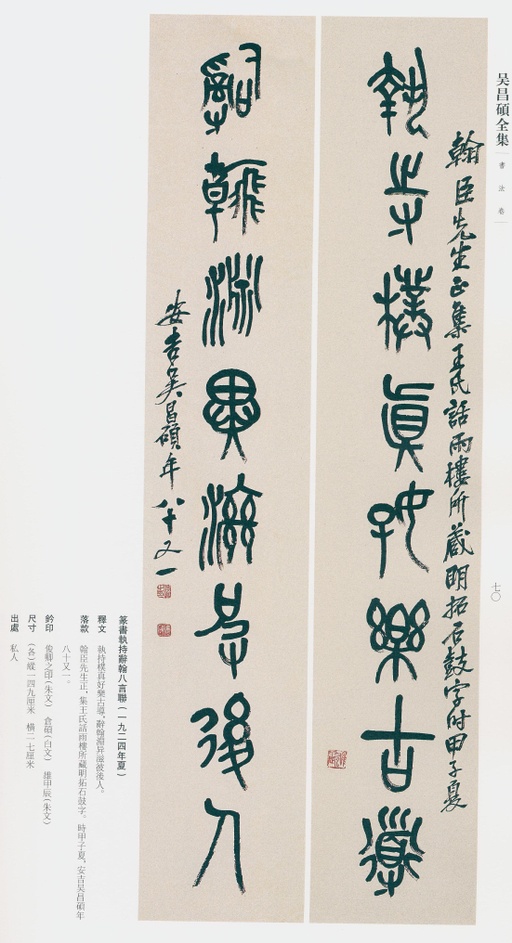 吴昌碩全集
書法卷
七〇
翰臣先生正集王氏話雨樓所藏明拓石鼓字时甲子夏
執持樸真好樂古導
辭翰淵異後人
安吉吴昌碩年八十又一
篆書執持辭翰八言聯(一九二四年夏)
釋文 執持樸真好樂古導,辭翰淵异後人。
落款 翰臣先生正,集王氏話雨樓所藏明拓石鼓字。時甲子夏,安吉吴昌碩年
八十又一。
鈐印 俊卿之印(朱文) 倉碩(白文) 雄甲辰(朱文)
尺寸 (各)縱一四九厘米 横二七厘米
出處 私人